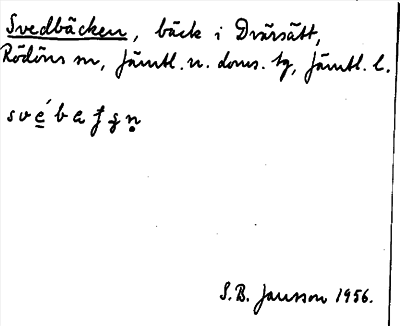 Svedbäcken, bäck i Dvärsätt,
Rödöns sn, Jämtl. n. doms. tg, Jämtl. l.
S.B. Jansson 1956.